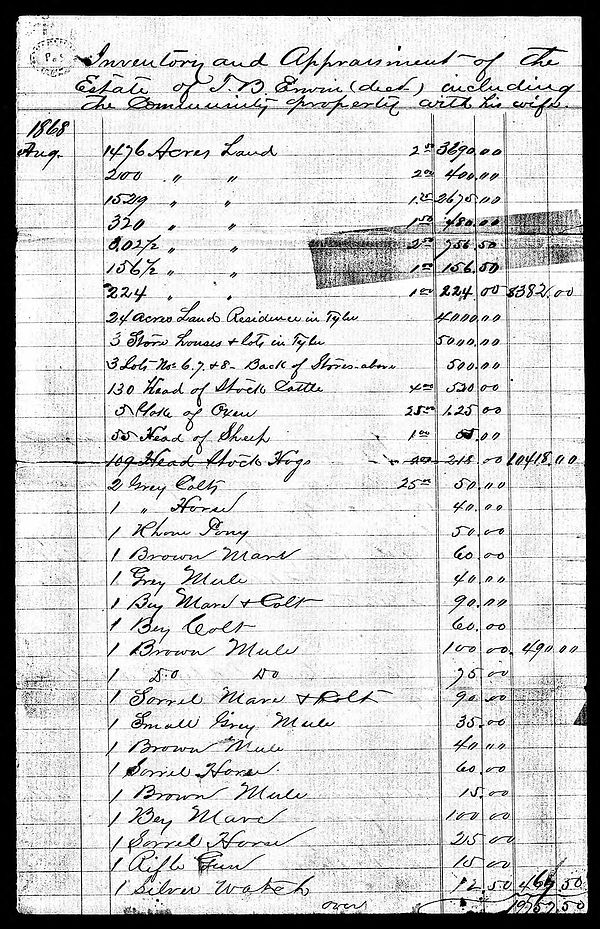 Inventory and Appraisment of the
Estate of T. B. Erwin (decd) including
the Community property with his wife.
1868
Aug. 1476 Acres Land 2 50 3690.00
200 " " 2 00 400.00
1529 " " 1.75 2675.00
320 " " 1 50 480.00
302 1/2 " " 2 50 756.50
156 1/2 " " 1 00 156.50
224 " " 1 00 224.00 8382.00
24 Acres Land Residence in Tyler 4000.00
3 Store houses & lots in Tyler 5000.00
3 Lots Nos 6. 7. & 8 - Back of Stores above 500.00
130 Head of Stock Cattle 4 00 520.00
5 Yoke of Oxen 25 00 1.25.00
55 Head of Sheep 1 00 55.00
109 Head Stock Hogs 2 00 218.00 10418.00
2 Grey Colts 25 00 50.00
1 " Horse 40.00
1 Rhone Pony 50.00
1 Brown Mare 60.00
1 Grey Mule 40.00
1 Bey Mare & Colt 90.00
1 Bey Colt 60.00
1 Brown Mule 100 00. 490.00
1 Do Do 75.00
1 Sorrel Mare & Colt 90.00
1 Small Grey Mule 35.00
1 Brown Mule 40.00
1 Sorrel Horse 60.00
1 Brown Mule 15.00
1 Bey Mare 100 00
1 Sorrel Horse 25 00
1 Rifle Gun 15 00
1 Silver Watch 12.50 467.50
over 19757.50